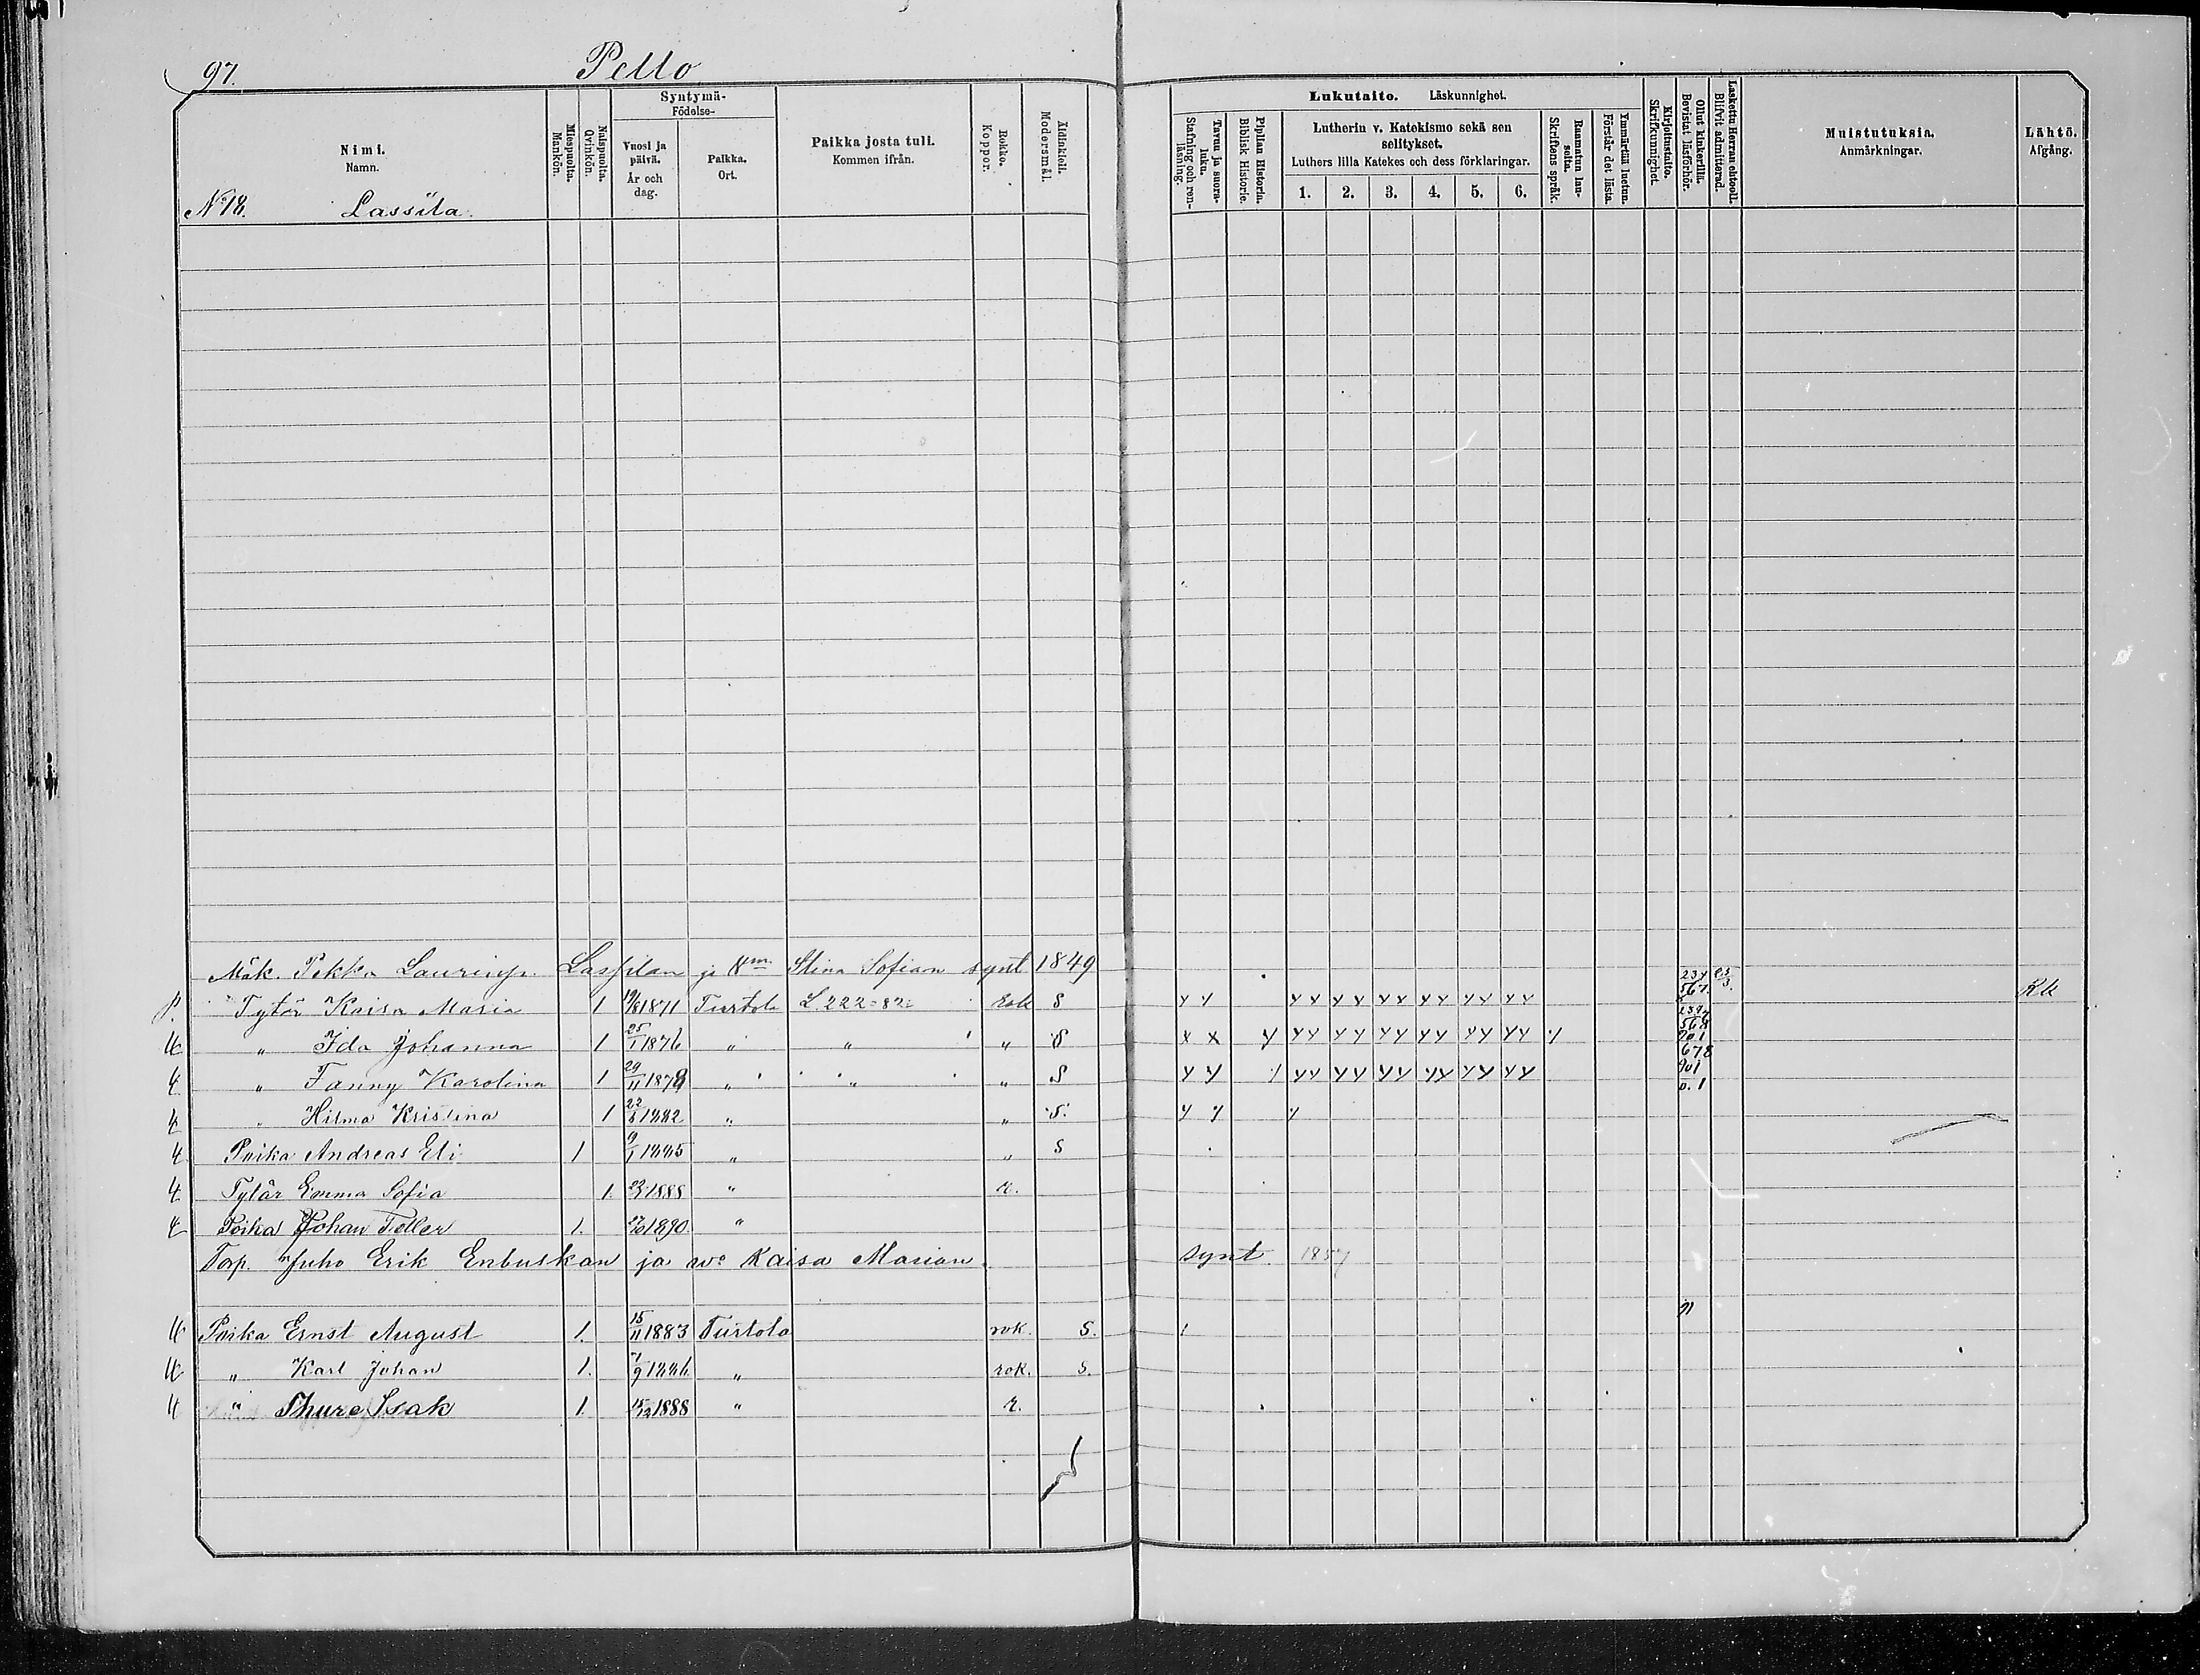 97. Pello
Nimi. Namn.
Miespuolia. Mankön.
Naispuolia. Qvinkön.
Syntymä- Födelse-
Vuosi ja päivä. År och dag.
Paikka. Ort.
Paikka josta tuli. Kommen ifrån.
Rokko. Koppor.
Äidinkieli. Modersmål.
Lukutaito. Läskunnighet.
Tavuu ja suora- luku. Stafning och ren- läsning.
Piplian Historia. Biblisk Historie.
Lutherin v. Katekismo sekä sen selitykset.
Luthers lilla Katekes och dess förklaringar.
1. 2. 3. 4. 5. 6.
Raamatun lau- seita. Skriftens språk.
Ymmärtää luetun. Förstår det lästa.
Kirjoitustaito. Skrifkunnighet.
Ollut kinkerillä. Bevistat läsförhör.
Laskettu Herran ehtooll. Blifvit admitterad.
Muistutuksia. Anmärkningar.
Lähtö. Afgång.
No 18. Lassila.
Mäk. Pekka Laurinp. Lassilan ja Stina Sofian synt 1849
Tytär Kaisa Maria 1 1871 Turtola L. 222=82 Rok S Rk
" Ida Johanna 1 25/1 1876 " " " S
" Fanny Karolina 1 29/11 1878 " " " S
" Hilma Kristina 1 1882 " " S.
Poika Andreas Eli 1 9/1 1885 " " S
Tytär Emma Sofia 1. 1888 " R.
Poika Johan Teller 1. 1890. "
Torp. Juho Erik Enbuskan ja wo Kaisa Marian synt. 1857
Poika Ernst August 1. 15/11 1883 Turtola rok. S.
" Karl Johan 1. 1886 " rok. S.
" Thure Isak 1 15/12 1888 " R.